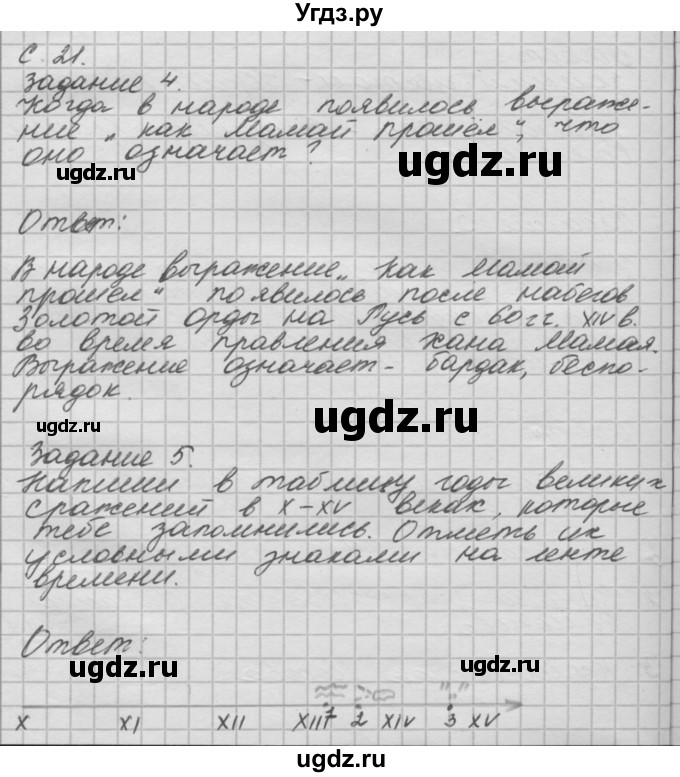 Угдз.ру
С. 21.
Задание 4.
Когда в народе появилось выраже-
ние „как Мамай прошёл", что
оно означает?
ugdz.ru
ugdz.ru
Ответ:
В народе выражение „как Мамай
прошёл" появилось после набегов
Золотой орды на Русь с 60гг. XIV в.
во время правления хана Мамая.
Выражение означает - бардак, беспо-
рядок.
ugdz.ru
ugdz.ru
Задание 5.
Напиши в таблицу годы великих
сражений в X-XV веках, которые
тебе запомнились. Отметь их
условными знаками на ленте
времени.
Ответ:
ugdz.ru
ugdz.ru
X XI XII XIII 1 2 XIV 3 XV